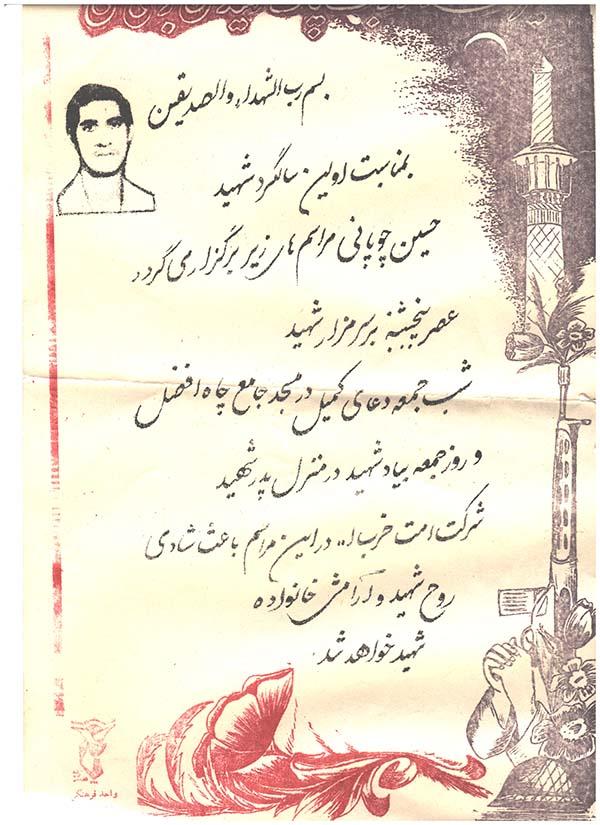 بسم رب الشهداء والصدیقین
بمناسبت اولین سالگرد شهید
حسین چوپانی مراسم های زیر برگزاری گردد
عصر پنجشنبه بر سر مزار شهید
شب جمعه دعای کمیل در مسجد جامع چاه افضل
و روز جمعه بیاد شهید در منزل پدر شهید
شرکت امت حزب ا.. در این مراسم باعث شادی
روح شهید و آرامش خانواده
شهید خواهد شد
واحد فرهنگی